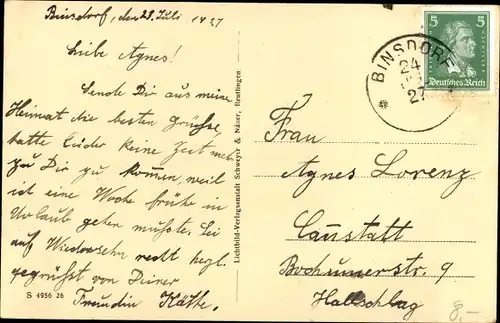 Binsdorf, den 23. Juli 1927
Liebe Agnes!
Sende Dir aus meiner
Heimat die besten Grüsse,
hatte leider keine Zeit mehr
zu Dir zu kommen, weil
ich eine Woche früher in
Urlaub gehen musste. Sei
auf Wiedersehn recht herzl.
gegrüsst von Deiner
Freundin Käthe.
S 4956 26
Lichtbild-Verlagsanstalt Schweyer & Näser, Reutlingen
5 5
Deutsches Reich
BINSDORF
24
27
Frau
Agnes Lorenz
Canstatt
Bochumerstr. 9
Hallschlag
8.-